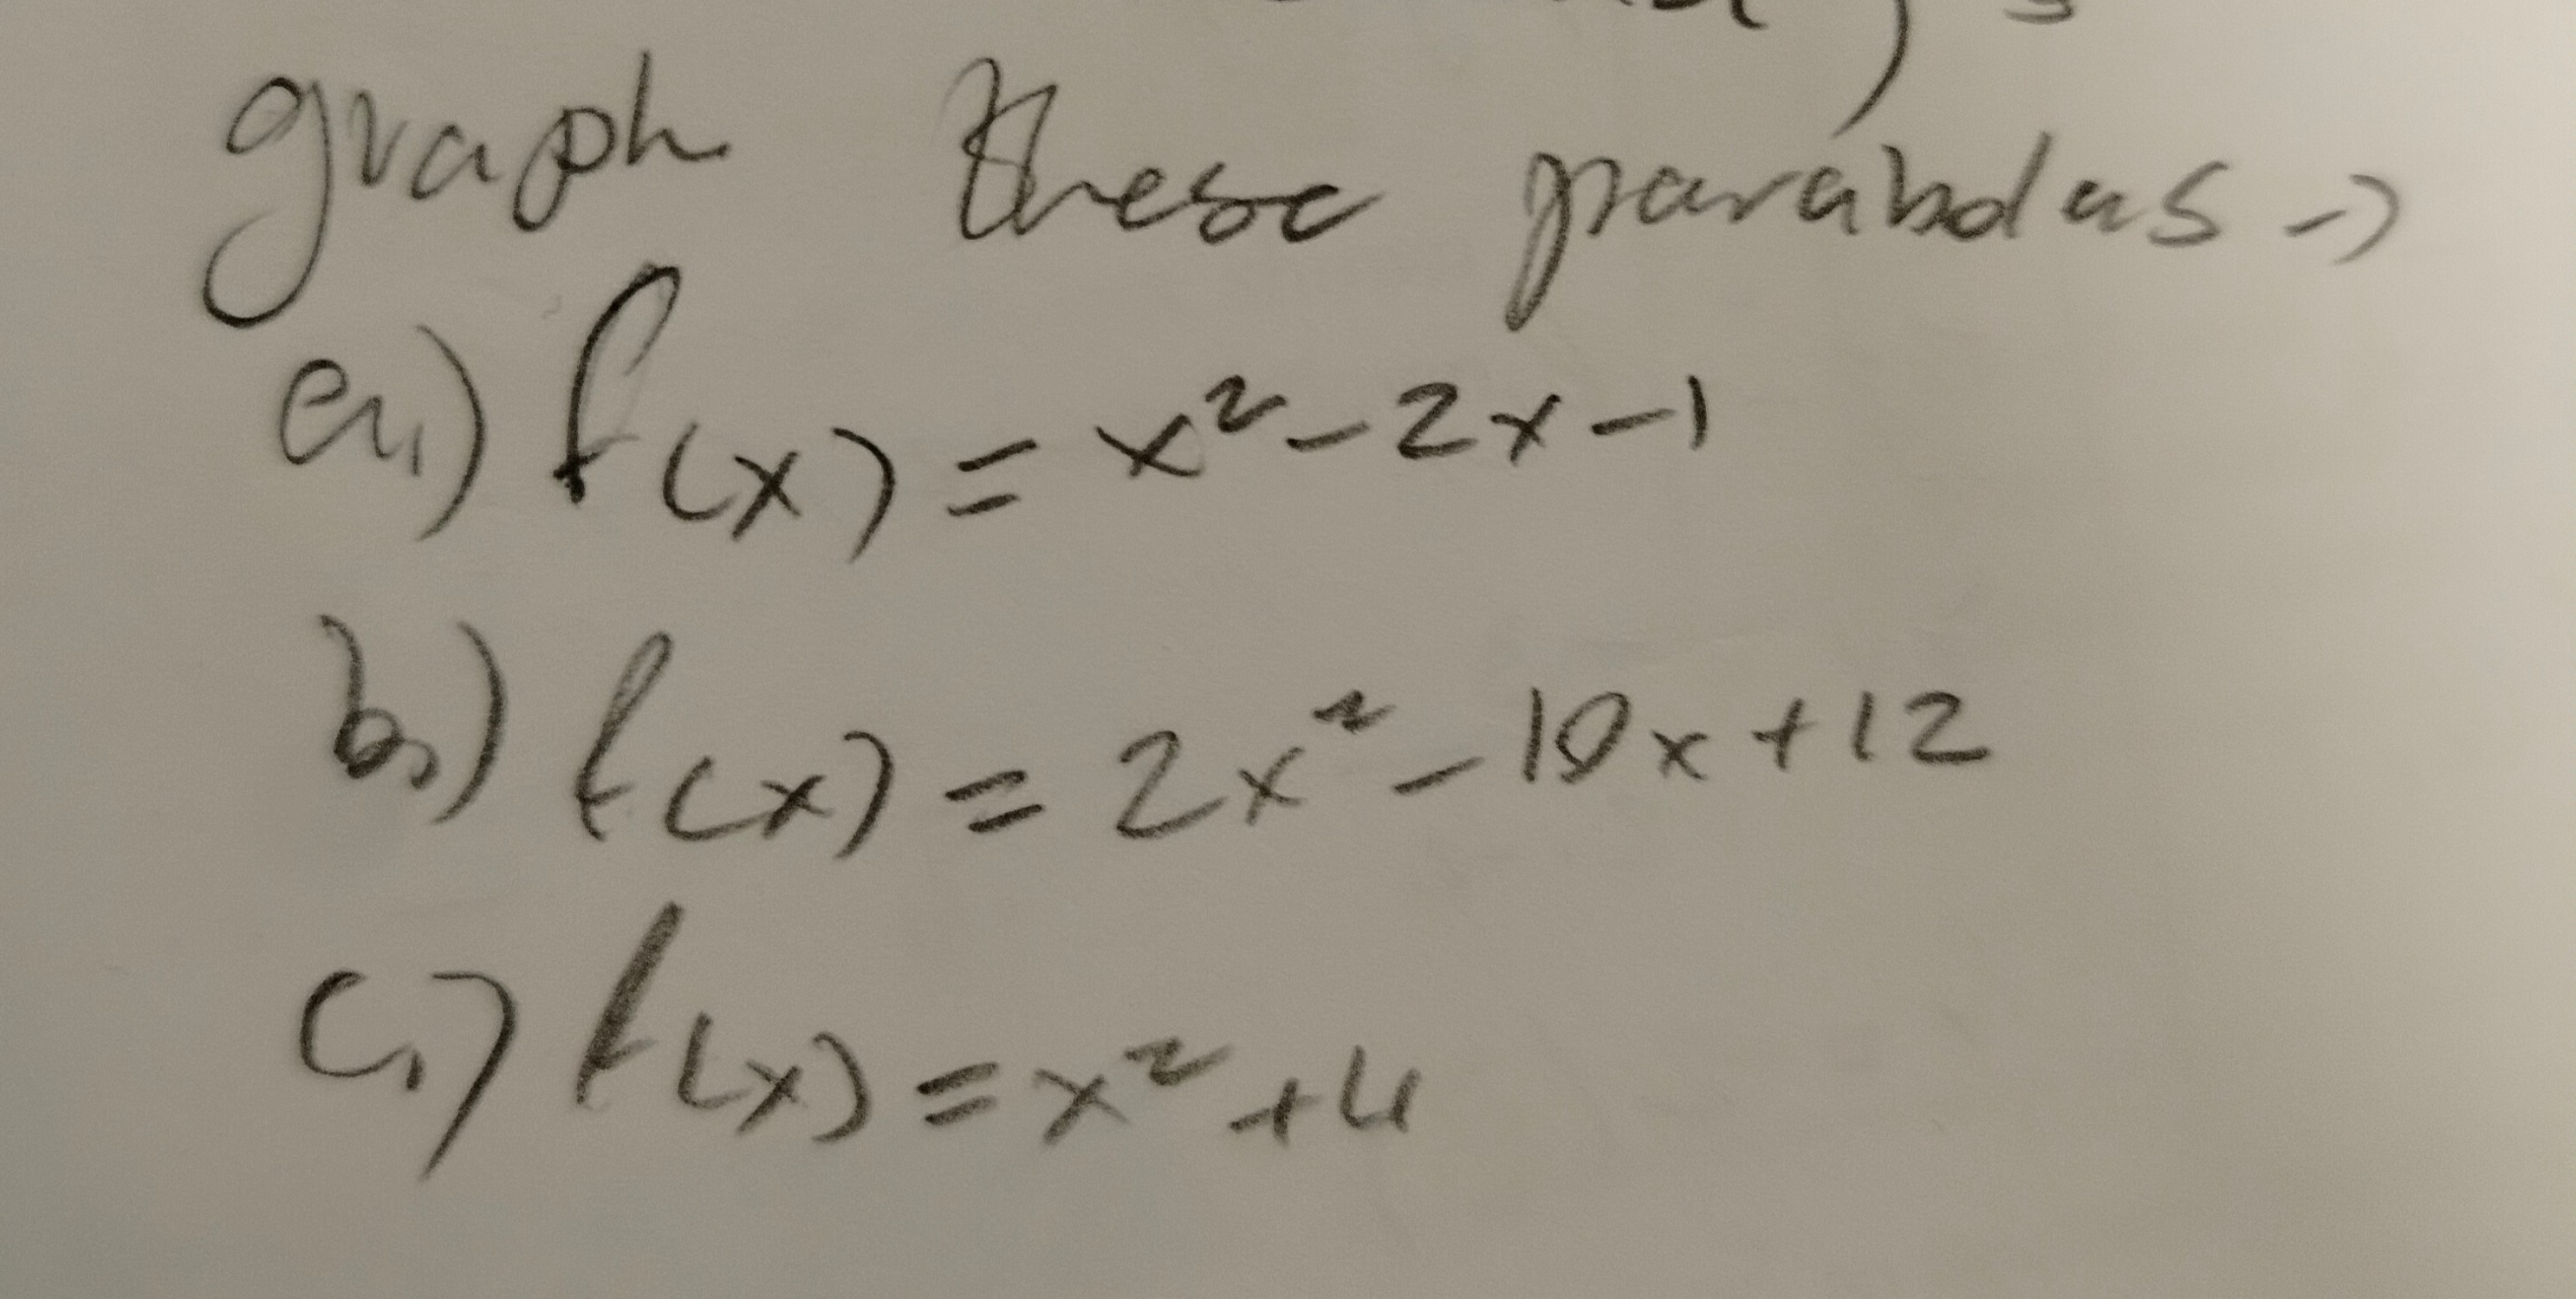 graph these parabolas →
a.) f(x) = x² - 2x - 1
b.) f(x) = 2x² - 10x + 12
c.) f(x) = x² + 4